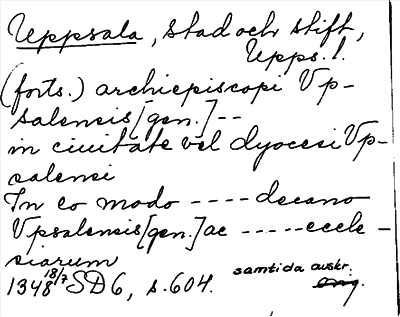 Uppsala, stad och stift,
Upps. l.
(forts.) archiepiscopi Vp-
salensis [gen.] --
in ciuitate vel dyocesi Vp-
salensi
In eo modo ---- decano
Vpsalensis [gen.] ac ----- eccle-
siarum
1348 18/7 SD 6, s. 604. samtida avskr.
orig.